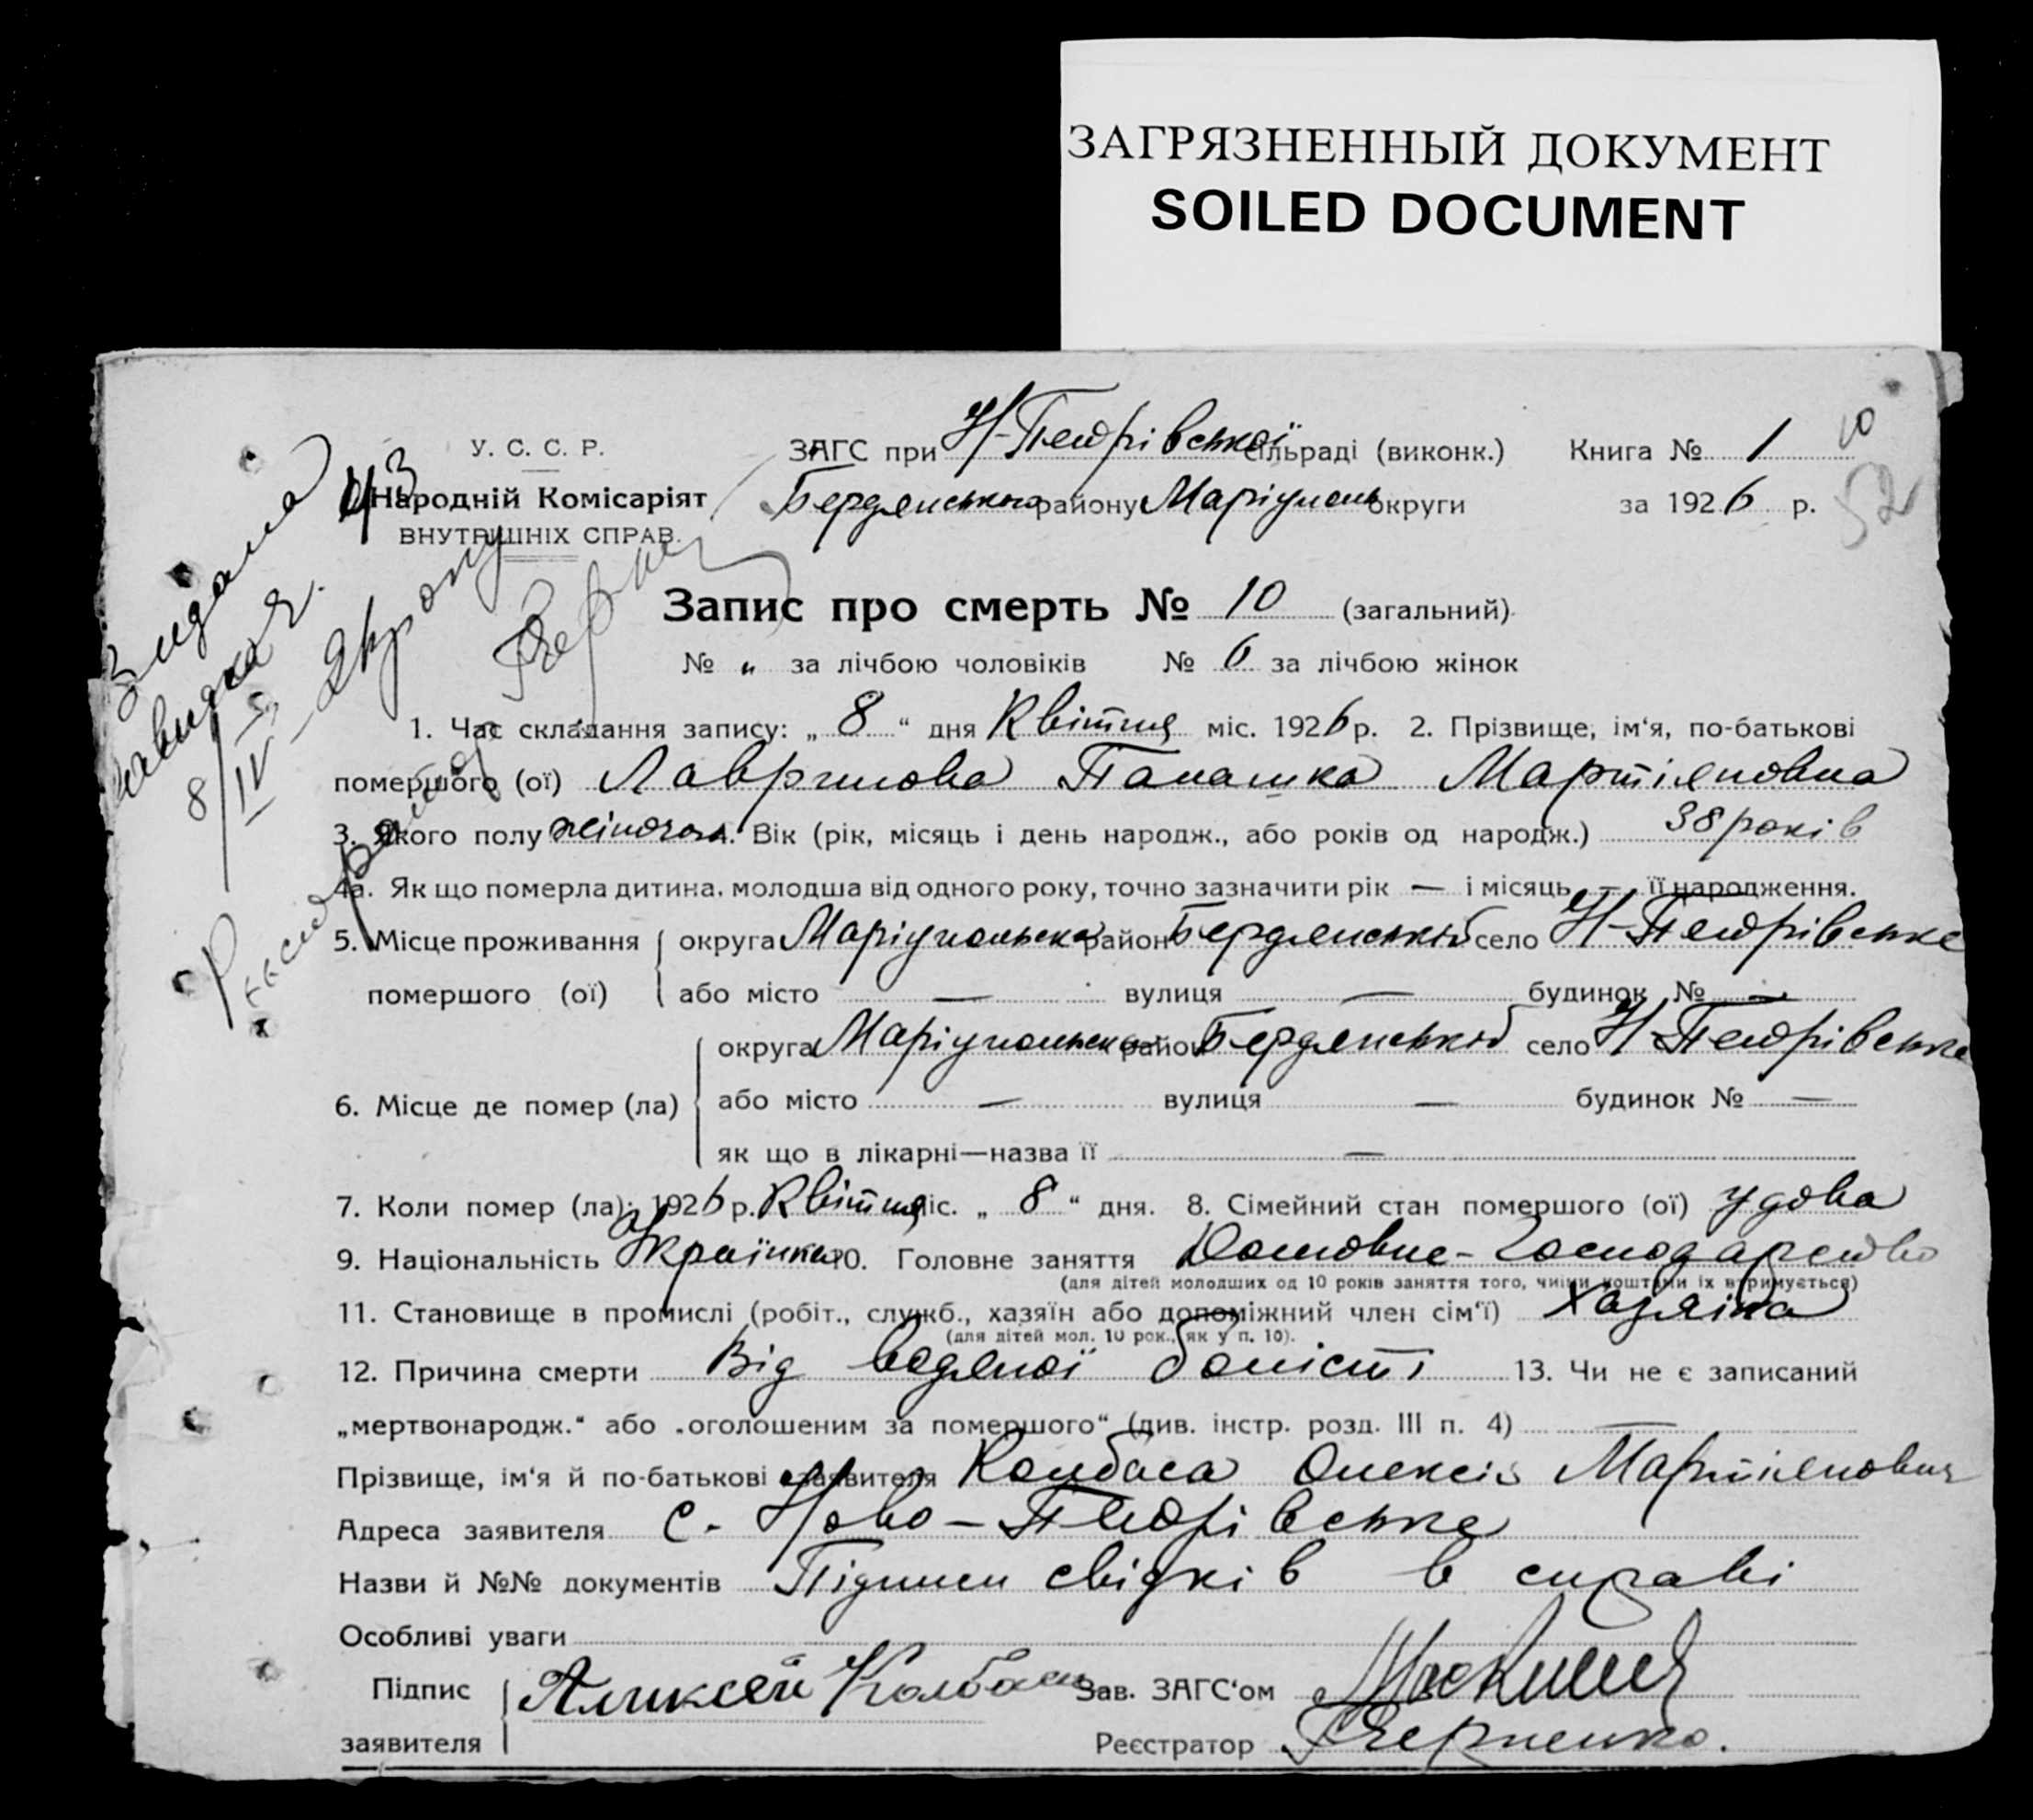 ЗАГРЯЗНЕННЫЙ ДОКУМЕНТ
SOILED DOCUMENT
У. С. С. Р.
Народній Комісаріят
ВНУТРІШНІХ СПРАВ.
43
ЗАГС при Н-Петрівської сільраді (виконк.) Книга № 1
10
Бердянського району Маріуполь округи за 1926 р.
52
Видана
8/IV
Реєстратор
Запис про смерть № 10 (загальний)
№ „ за лічбою чоловіків № 6 за лічбою жінок
1. Час складання запису: „ 8 “ дня Квітня міс. 1926 р. 2. Прізвище, ім‘я, по-батькові
помершого (ої) Лавринова Палашка Мартіяновна
3. Якого полу жіночого 4. Вік (рік, місяць і день народж., або років од народж.) 38 років
4а. Як що померла дитина, молодша від одного року, точно зазначити рік — і місяць — її народження.
5. Місце проживання округа Маріупольська район Бердянський село Н-Петрівське
помершого (ої) або місто — вулиця — будинок № —
округа Маріупольська район Бердянський село Н-Петрівське
6. Місце де помер (ла) або місто — вулиця — будинок № —
як що в лікарні—назва її —
7. Коли помер (ла): 1926 р. Квітня міс. „ 8 “ дня. 8. Сімейний стан помершого (ої) удова
9. Національність Українка 10. Головне заняття Домовне-Господарство
(для дітей молодших од 10 років заняття того, чиїми коштами їх втримується)
11. Становище в промислі (робіт., служб., хазяїн або допоміжний член сім‘ї) Хазяїка
(для дітей мол. 10 рок., як у п. 10).
12. Причина смерти Від водяної болісті 13. Чи не є записаний
„мертвонародж.“ або „оголошеним за помершого“ (див. інстр. розд. III п. 4) —
Прізвище, ім‘я й по-батькові заявителя Колбаса Олексій Мартіянович
Адреса заявителя с. Ново-Петрівське
Назви й №№ документів Підписи свідків в справі
Особливі уваги
Підпис заявителя Аликсей Колбаса Зав. ЗАГС‘ом
Реєстратор Г Черненко.